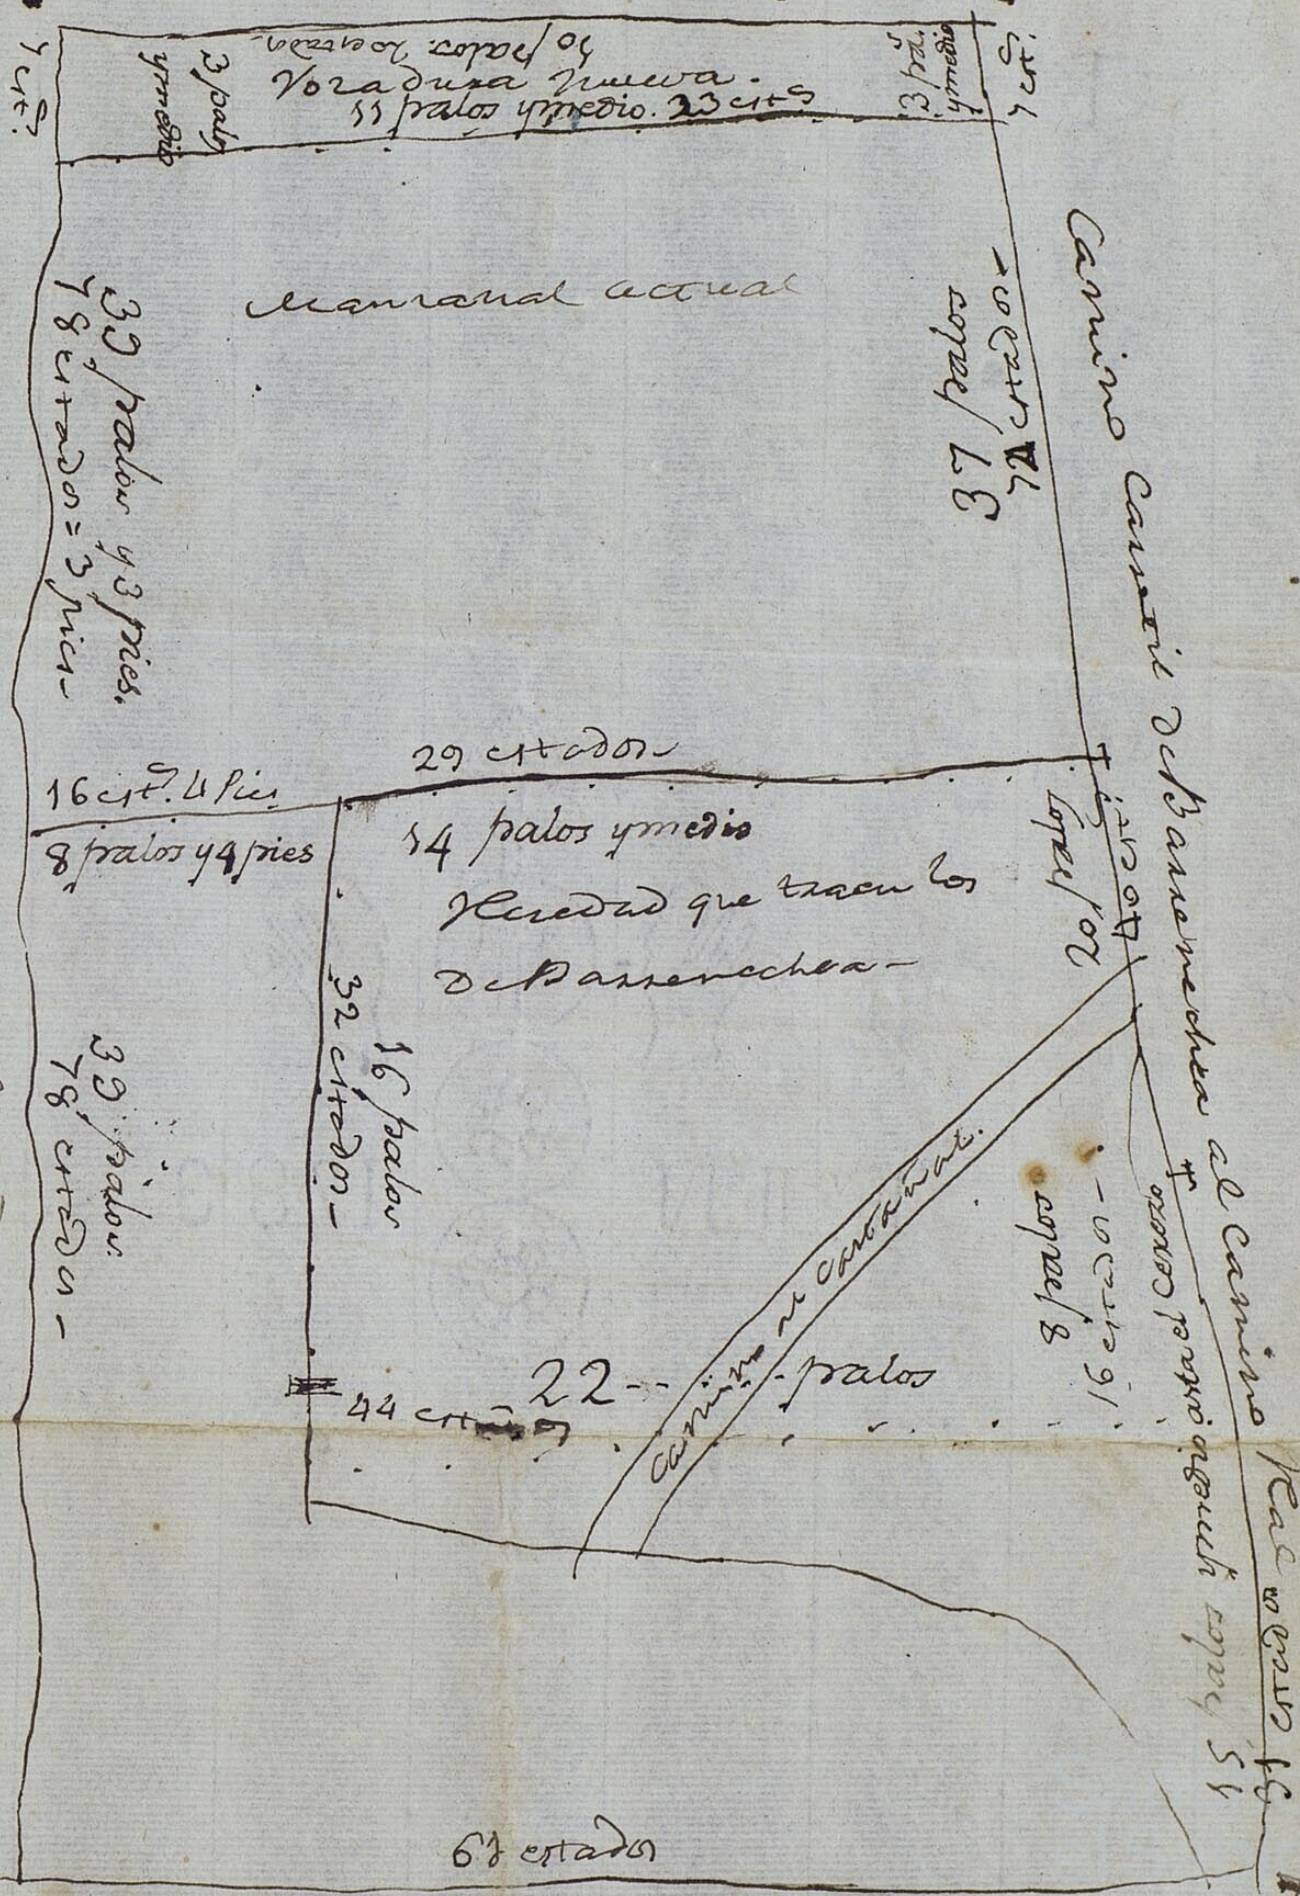 7 estˢ
3 palos
ymedio
30 palos. estados
Voradura Nueva.
11 palos ymedio. 23 estˢ
3 palˢ
ymedio
7 estˢ
Manzanal actual
39 palos y 3 pies.
78 estados = 3 pies
37 palos
estados
Camino Carretil de Barrenechea al Camino Real
29 estados
16 estˢ. 4 Pies
8 palos y 4 pies
14 palos ymedio
Heredad que traen los
de Barrenechea
20 palos
40 estˢ
32 estados
16 palos
39 palos
78 estados
Camino al Castañal.
8 palos
16 estados
22 palos
44 estˢ
61 estados